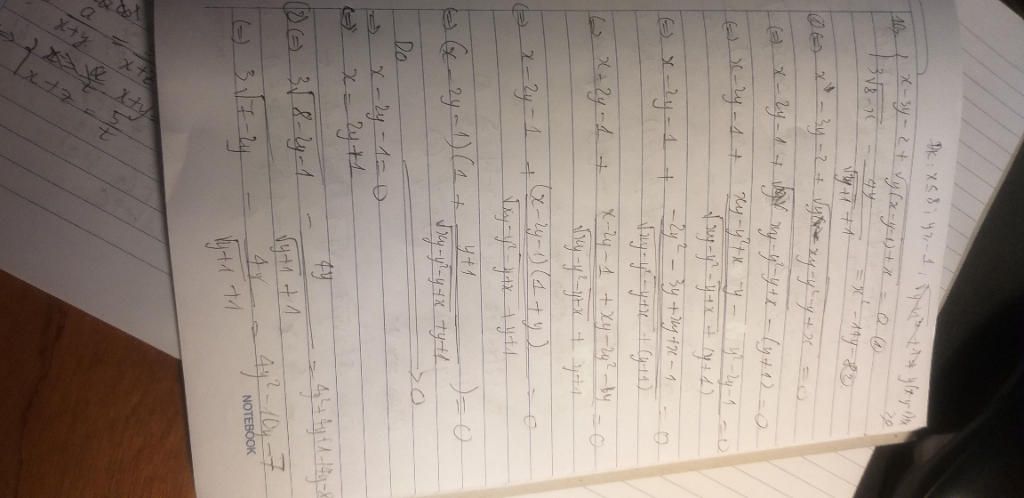 x - 3y - 2 + √y(x-y-1)+x = 0 ①
3√8-x - 4y/√y+1 + 1 = x² - 14y - 8 ②
① ⇔ x - 3y - 2 + √xy-y²-y+x = 0
⇔ x - 2y - 1 + √xy-y²-y+x - (y+1) = 0
⇔ x - 2y - 1 + xy-y²+x-y-y²-2y-1/√xy-y²-y+x + (y+1) = 0
⇔ x - 2y - 1 + -2y²-3y+xy+x-1/√xy-y²-y+x + (y+1) = 0
⇔ x - 2y - 1 + x-2y-1+xy-2y²-y/√xy-y²-y+x + y+1 = 0
⇔ x - 2y - 1 + (x-2y-1)(1+y)/√xy-y²-y+x + y+1 = 0
⇔ (x-2y-1)(1 + y+1/√xy-y²-y+x + y+1) = 0
Do > 0
⇒ x - 2y - 1 = 0
⇔ x = 2y+1
② ⇔ 3√8-2y-1 - 4y/√y+1 + 1 = 4y²+4y+1-14y-8
⇔ 3√7-2y - 4y/√y+1 + 1 = 4y² - 10y - 7
NOTEBOOK